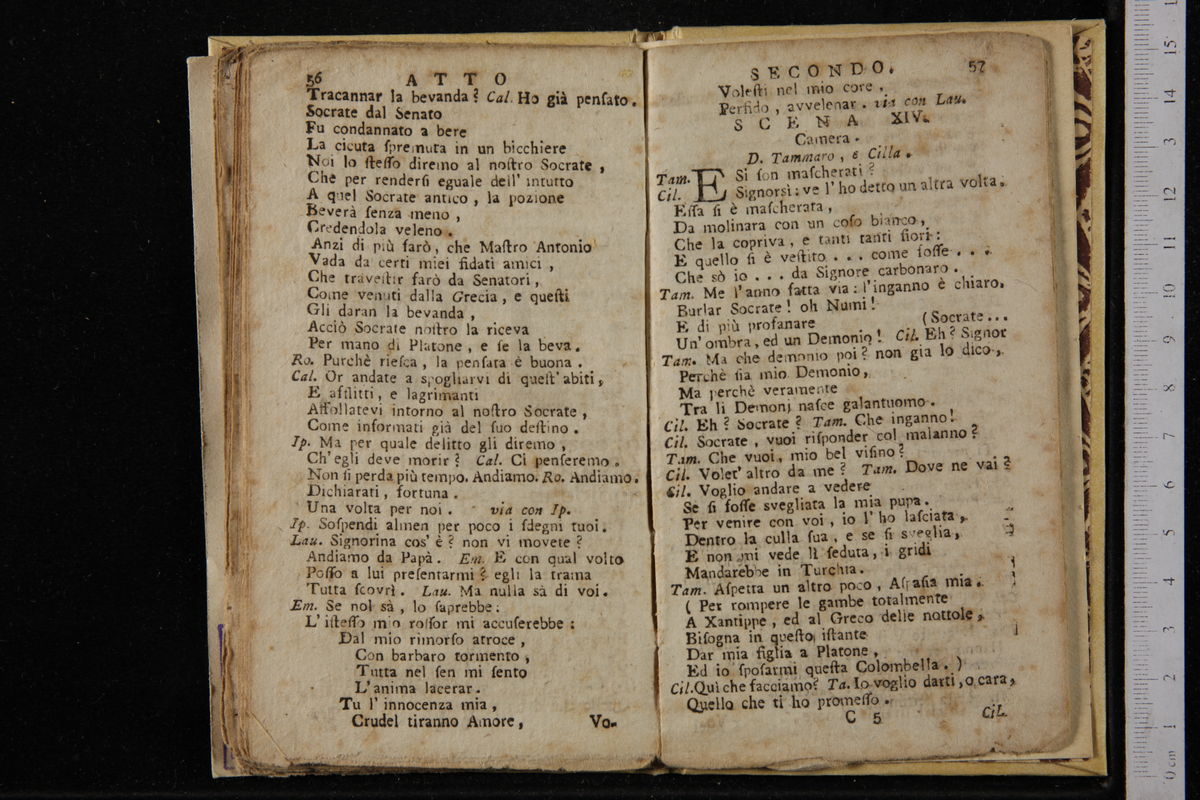 56 ATTO
Tracannar la bevanda? Cal. Ho già penſato.
Socrate dal Senato
Fu condannato a bere
La cicuta ſpremuta in un bicchiere
Noi lo ſteſſo diremo al noſtro Socrate,
Che per renderſi eguale dell' intutto
A quel Socrate antico, la pozione
Beverà ſenza meno,
Credendola veleno.
Anzi di più farò, che Maſtro Antonio
Vada da certi miei fidati amici,
Che traveſtir farò da Senatori,
Come venuti dalla Grecia, e queſti
Gli daran la bevanda,
Acciò Socrate noſtro la riceva
Per mano di Platone, e ſe la beva.
Ro. Purchè rieſca, la penſata è buona.
Cal. Or andate a spogliarvi di queſt' abiti,
E afflitti, e lagrimanti
Affollatevi intorno al noſtro Socrate,
Come informati già del ſuo deſtino.
Ip. Ma per quale delitto gli diremo,
Ch' egli deve morir? Cal. Ci penſeremo.
Non ſi perda più tempo. Andiamo. Ro. Andiamo.
Dichiarati, fortuna.
Una volta per noi. via con Ip.
Ip. Soſpendi almen per poco i ſdegni tuoi.
Lau. Signorina cos' è? non vi movete?
Andiamo da Papà. Em. E con qual volto
Poſſo a lui preſentarmi? egli la trama
Tutta ſcovrì. Lau. Ma nulla sà di voi.
Em. Se nol sà, lo ſaprebbe:
L' iſteſſo mio roſſor mi accuſerebbe:
Dal mio rimorſo atroce,
Con barbaro tormento,
Tutta nel ſen mi ſento
L' anima lacerar.
Tu l' innocenza mia,
Crudel tiranno Amore,
Vo-
SECONDO. 57
Voleſti nel mio core,
Perfido, avvelenar. via con Lau.
SCENA XIV.
Camera.
D. Tammaro, e Cilla.
Tam. ESi ſon maſcherati?
Cil. Signorsì: ve l' ho detto un altra volta.
Eſſa ſi è maſcherata,
Da molinara con un coſo bianco,
Che la copriva, e tanti tanti fiori:
E quello ſi è veſtito ... come foſſe ...
Che sò io ... da Signore carbonaro.
Tam. Me l' anno fatta via: l' inganno è chiaro.
Burlar Socrate! oh Numi!
E di più profanare (Socrate...
Un' ombra, ed un Demonio! Cil. Eh? Signor
Tam. Ma che demonio poi? non gia lo dico,
Perchè ſia mio Demonio,
Ma perchè veramente
Tra li Demonj naſce galantuomo.
Cil. Eh? Socrate? Tam. Che inganno!
Cil. Socrate, vuoi riſponder col malanno?
Tam. Che vuoi, mio bel viſino?
Cil. Volet' altro da me? Tam. Dove ne vai?
Cil. Voglio andare a vedere
Se ſi foſſe svegliata la mia pupa.
Per venire con voi, io l' ho laſciata,
Dentro la culla ſua, e se ſi sveglia,
E non mi vede lì ſeduta, i gridi
Mandarebbe in Turchia.
Tam. Aſpetta un altro poco, Aſpaſia mia.
( Per rompere le gambe totalmente
A Xantippe, ed al Greco delle nottole,
Biſogna in queſto iſtante
Dar mia figlia a Platone,
Ed io ſpoſarmi queſta Colombella. )
Cil. Quì che facciamo? Ta. Io voglio darti, o cara,
Quello che ti ho promeſſo.
C 5 Cil.